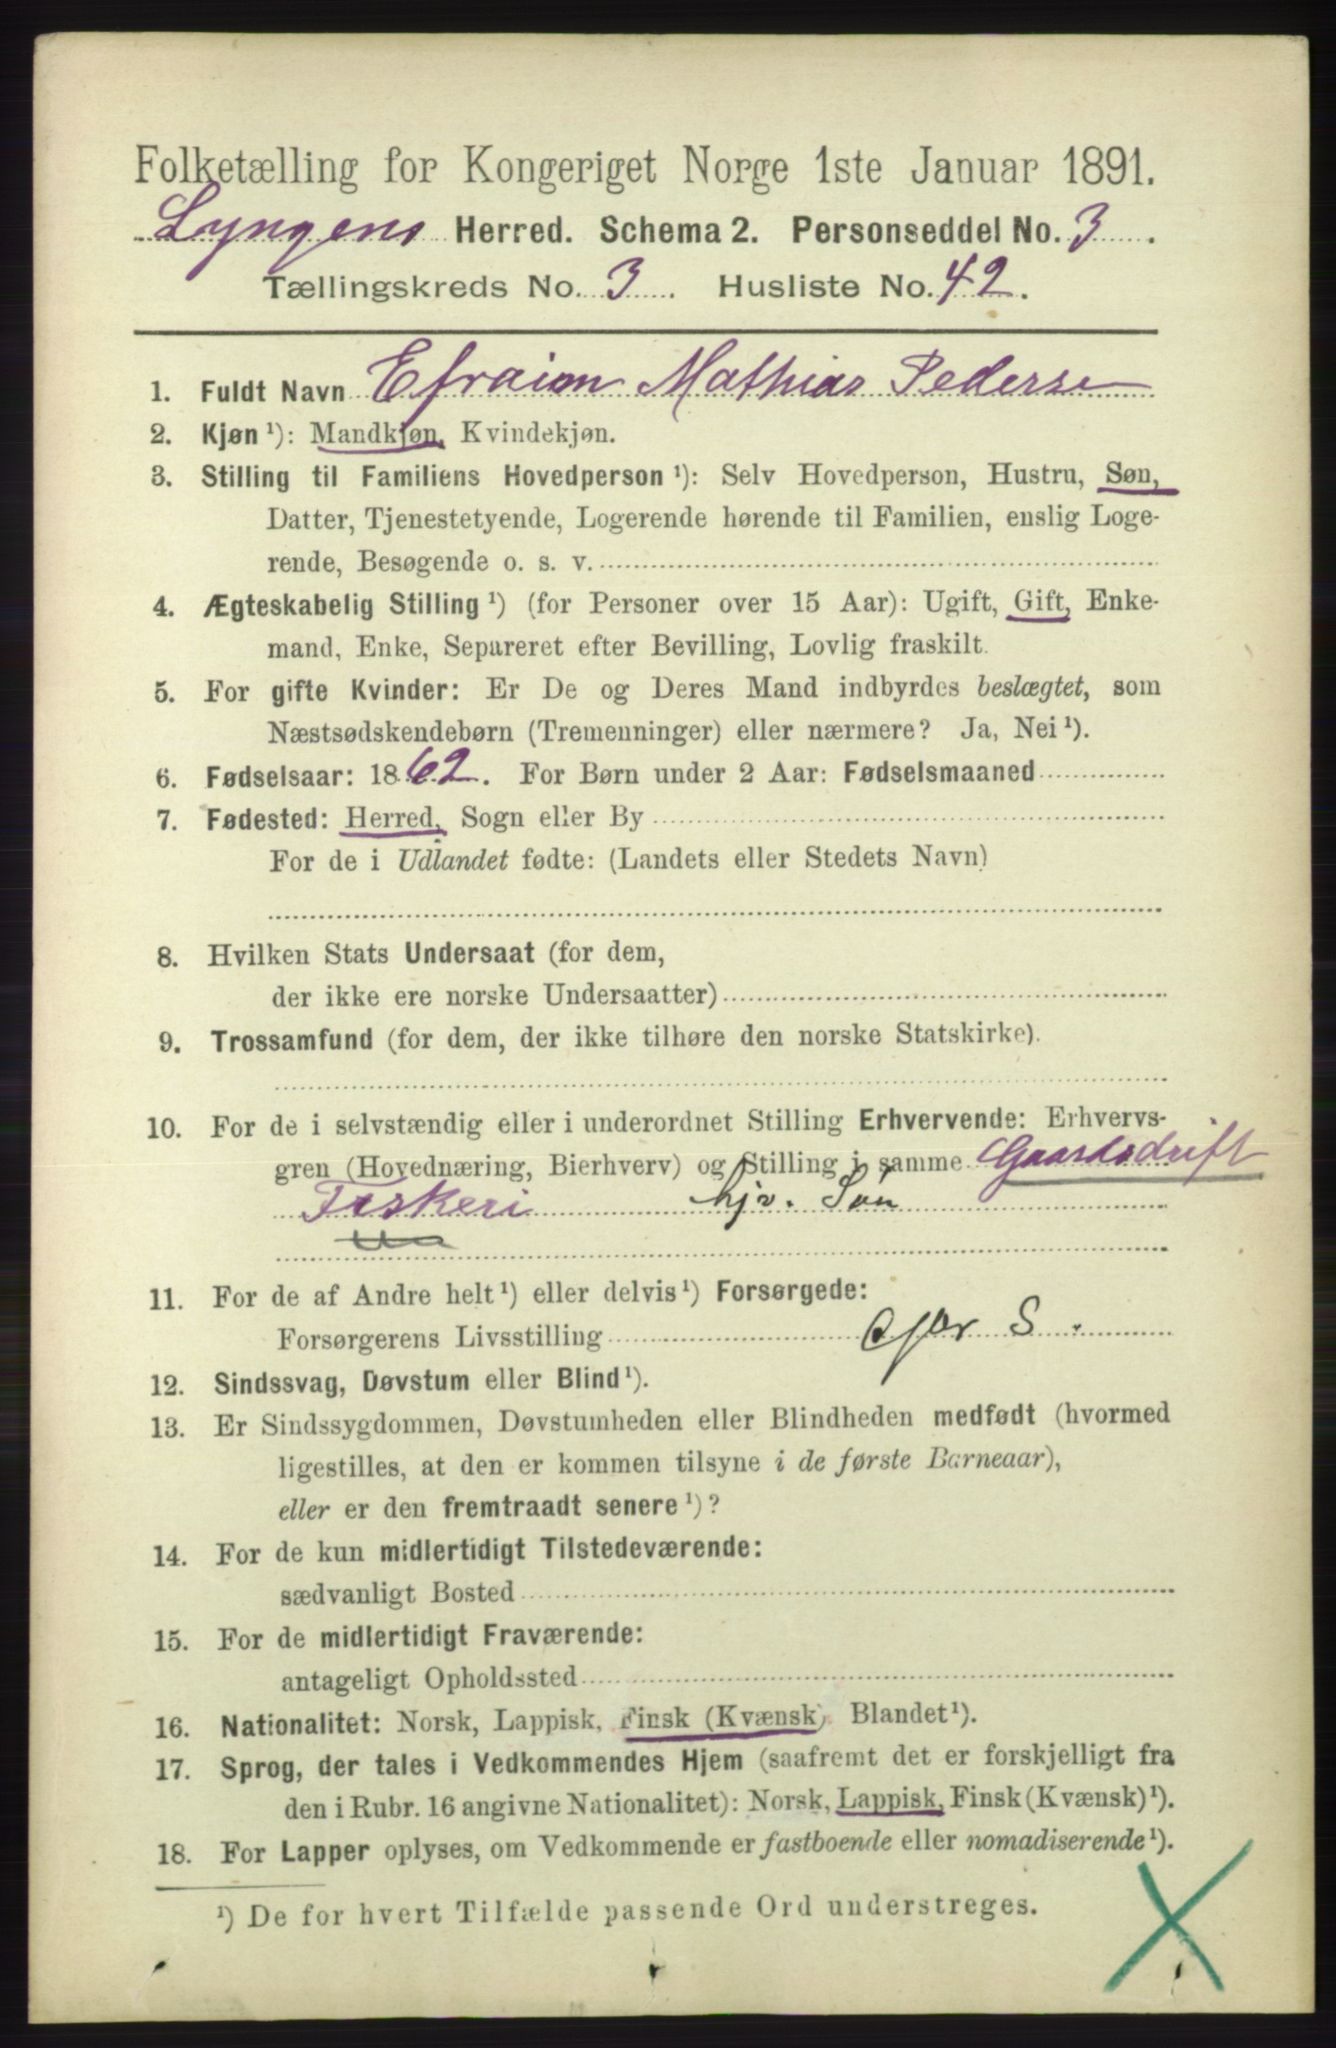 Folketælling for Kongeriget Norge 1ste Januar 1891.
Lyngens Herred. Schema 2. Personseddel No. 3.
Tællingskreds No. 3. Husliste No. 42.
1. Fuldt Navn Efraim Mathias Pederse
2. Kjøn ¹): Mandkjøn, Kvindekjøn.
3. Stilling til Familiens Hovedperson ¹): Selv Hovedperson, Hustru, Søn,
Datter, Tjenestetyende, Logerende hørende til Familien, enslig Loge-
rende, Besøgende o. s. v.
4. Ægteskabelig Stilling ¹) (for Personer over 15 Aar): Ugift, Gift, Enke-
mand, Enke, Separeret efter Bevilling, Lovlig fraskilt.
5. For gifte Kvinder: Er De og Deres Mand indbyrdes beslægtet, som
Næstsødskendebørn (Tremenninger) eller nærmere? Ja, Nei ¹).
6. Fødselsaar: 1862. For Børn under 2 Aar: Fødselsmaaned
7. Fødested: Herred, Sogn eller By
For de i Udlandet fødte: (Landets eller Stedets Navn)
8. Hvilken Stats Undersaat (for dem,
der ikke ere norske Undersaatter)
9. Trossamfund (for dem, der ikke tilhøre den norske Statskirke).
10. For de i selvstændig eller i underordnet Stilling Erhvervende: Erhvervs-
gren (Hovednæring, Bierhverv) og Stilling i samme Gaardsdrift
Fiskeri hjv. Søn
11. For de af Andre helt ¹) eller delvis ¹) Forsørgede:
Forsørgerens Livsstilling S.
12. Sindssvag, Døvstum eller Blind ¹).
13. Er Sindssygdommen, Døvstumheden eller Blindheden medfødt (hvormed
ligestilles, at den er kommen tilsyne i de første Barneaar),
eller er den fremtraadt senere ¹)?
14. For de kun midlertidigt Tilstedeværende:
sædvanligt Bosted
15. For de midlertidigt Fraværende:
antageligt Opholdssted
16. Nationalitet: Norsk, Lappisk, Finsk (Kvænsk) Blandet ¹).
17. Sprog, der tales i Vedkommendes Hjem (saafremt det er forskjelligt fra
den i Rubr. 16 angivne Nationalitet): Norsk, Lappisk, Finsk (Kvænsk) ¹).
18. For Lapper oplyses, om Vedkommende er fastboende eller nomadiserende ¹).
¹) De for hvert Tilfælde passende Ord understreges.